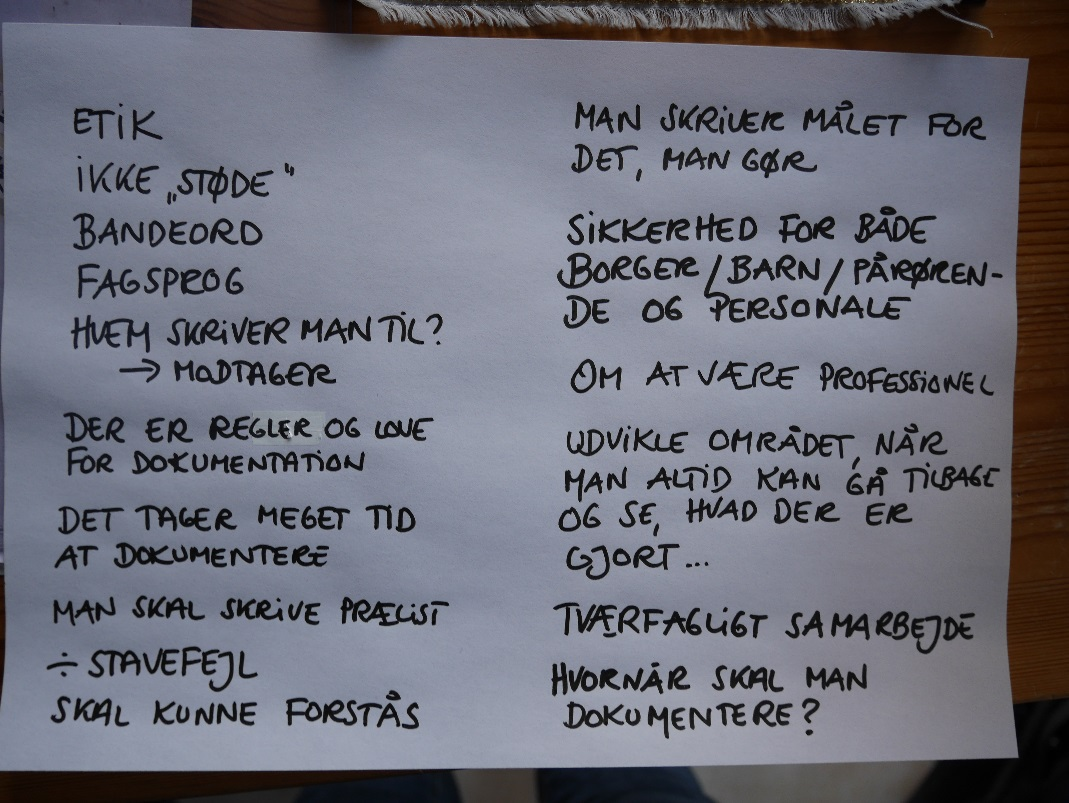 ETIK
IKKE „STØDE"
BANDEORD
FAGSPROG
HVEM SKRIVER MAN TIL?
→ MODTAGER
DER ER REGLER OG LOVE
FOR DOKUMENTATION
DET TAGER MEGET TID
AT DOKUMENTERE
MAN SKAL SKRIVE PRÆCIST
÷ STAVEFEJL
SKAL KUNNE FORSTÅS
MAN SKRIVER MÅLET FOR
DET, MAN GØR
SIKKERHED FOR BÅDE
BORGER/BARN/PÅRØREN-
DE OG PERSONALE
OM AT VÆRE PROFESSIONEL
UDVIKLE OMRÅDET, NÅR
MAN ALTID KAN GÅ TILBAGE
OG SE, HVAD DER ER
GJORT...
TVÆRFAGLIGT SAMARBEJDE
HVORNÅR SKAL MAN
DOKUMENTERE?